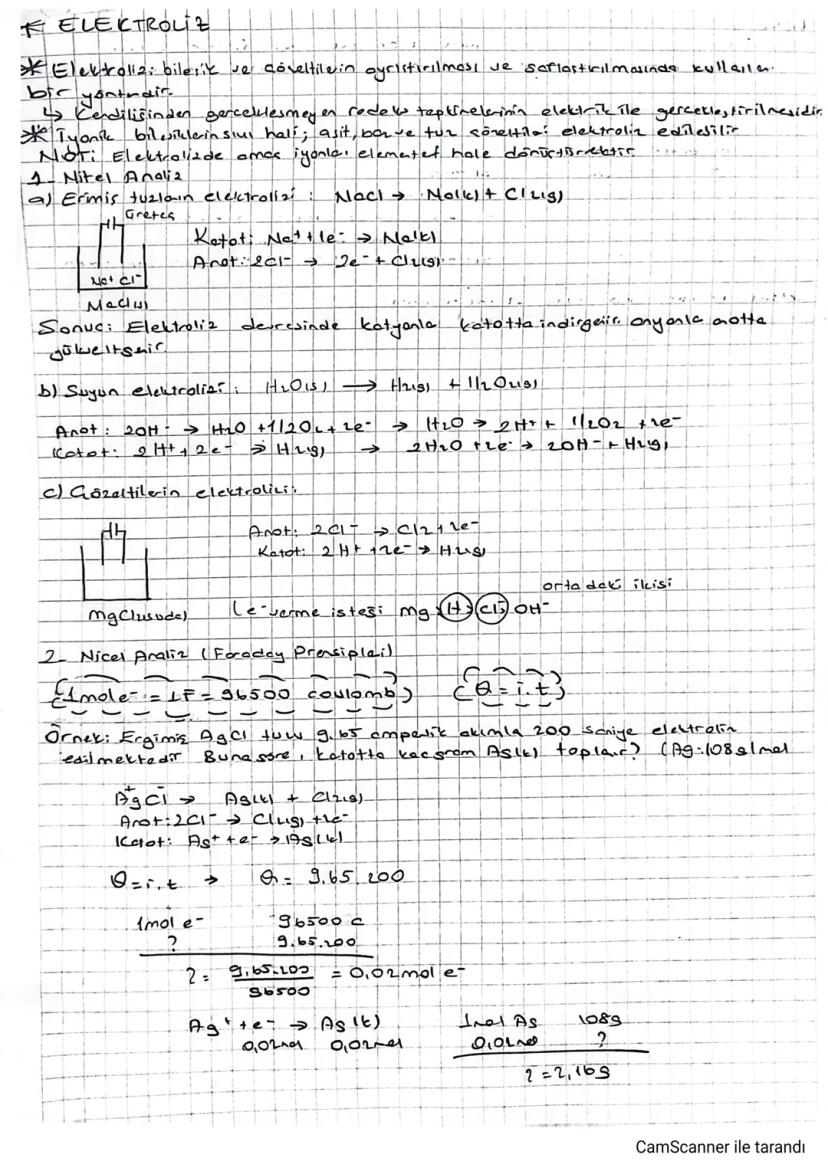 ELEKTROLİZ
* Elektroliz: bileşik ve çözeltilerin ayrıştırılması ve saflaştırılmasında kullanılan
bir yöntemdir.
↳ Kendiliğinden gerçekleşmeyen redoks tepkimelerinin elektrik ile gerçekleştirilmesidir
* İyonik bileşiklerin sıvı hali; asit, baz ve tuz çözeltileri elektroliz edilebilir
NOT: Elektrolizde amaç iyonları elementel hale dönüştürmektir.
1- Nitel Analiz
a) Ermiş tuzların elektrolizi: NaCl → Na(k) + Cl2(g)
Üreteç
Katot: Na+ + 1e- → Na(k)
Anot: 2Cl- → 2e- + Cl2(g)
Na+ Cl-
NaCl(s)
Sonuç: Elektroliz devresinde katyonlar katotta indirgenir, anyonlar anotta
yükseltgenir.
b) Suyun elektrolizi: H2O(s) → H2(g) + 1/2O2(g)
Anot: 2OH- → H2O + 1/2O2 + 2e- → H2O → 2H+ + 1/2O2 + 2e-
Katot: 2H+ + 2e- → H2(g) → 2H2O + 2e- → 2OH- + H2(g)
c) Çözeltilerin elektrolizi:
Anot: 2Cl- → Cl2 + 2e-
Katot: 2H+ + 2e- → H2(g)
ortadaki ikisi
MgCl2(suda) (e- verme isteği Mg > H > Cl > OH-
2- Nicel Analiz (Faraday Prensipleri)
(1mole- = 1F = 96500 coulomb) (Q = i.t)
Örnek: Ergimiş AgCl tuzu 9.65 amperlik akımla 200 saniye elektroliz
edilmektedir Buna göre, katotta kaç gram Ag(k) toplanır? (Ag:108g/mol
Ag+Cl- → Ag(k) + Cl2(g)
Anot: 2Cl- → Cl2(g) + 2e-
Katot: Ag+ + e- → Ag(k)
Q = i.t → Q = 9.65.200
1mol e- 96500 c
? 9.65.200
? = 9.65.200 = 0,02mol e-
96500
Ag+ + e- → Ag(k) 1mol Ag 108g
0,02mol 0,02mol 0,02mol ?
? = 2,16g
CamScanner ile tarandı